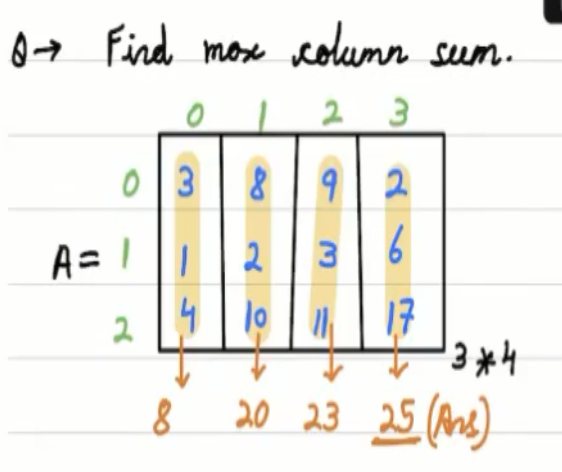 Q→ Find max column sum.
0 1 2 3
0 3 8 9 2
A= 1 1 2 3 6
2 4 10 11 17
3*4
8 20 23 25 (Ans)